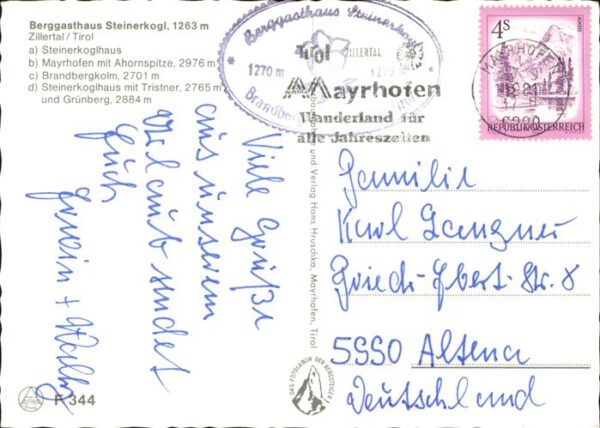 Berggasthaus Steinerkogl, 1263 m
Zillertal / Tirol
a) Steinerkoglhaus
b) Mayrhofen mit Ahornspitze, 2976 m
c) Brandbergkolm, 2701 m
d) Steinerkoglhaus mit Tristner, 2765 m
und Grünberg, 2884 m
Berggasthaus Steinerkogl
1270 m
Tirol
ZILLERTAL
Mayrhofen
Wanderland für
alle Jahreszeiten
4S
REPUBLIK ÖSTERREICH
MAYRHOFEN
1981
6290
Viele Grüße
aus unserem
Urlaub sendet
Euch
Erwin +
und Verlag Hans Hruschka, Mayrhofen, Tirol
Familie
Karl
Friedr-Ebert-Str. 8
5990 Altena
Deutschland
DAS FOTOLABOR DER BERGSTEIGER
ALPINA
F 344